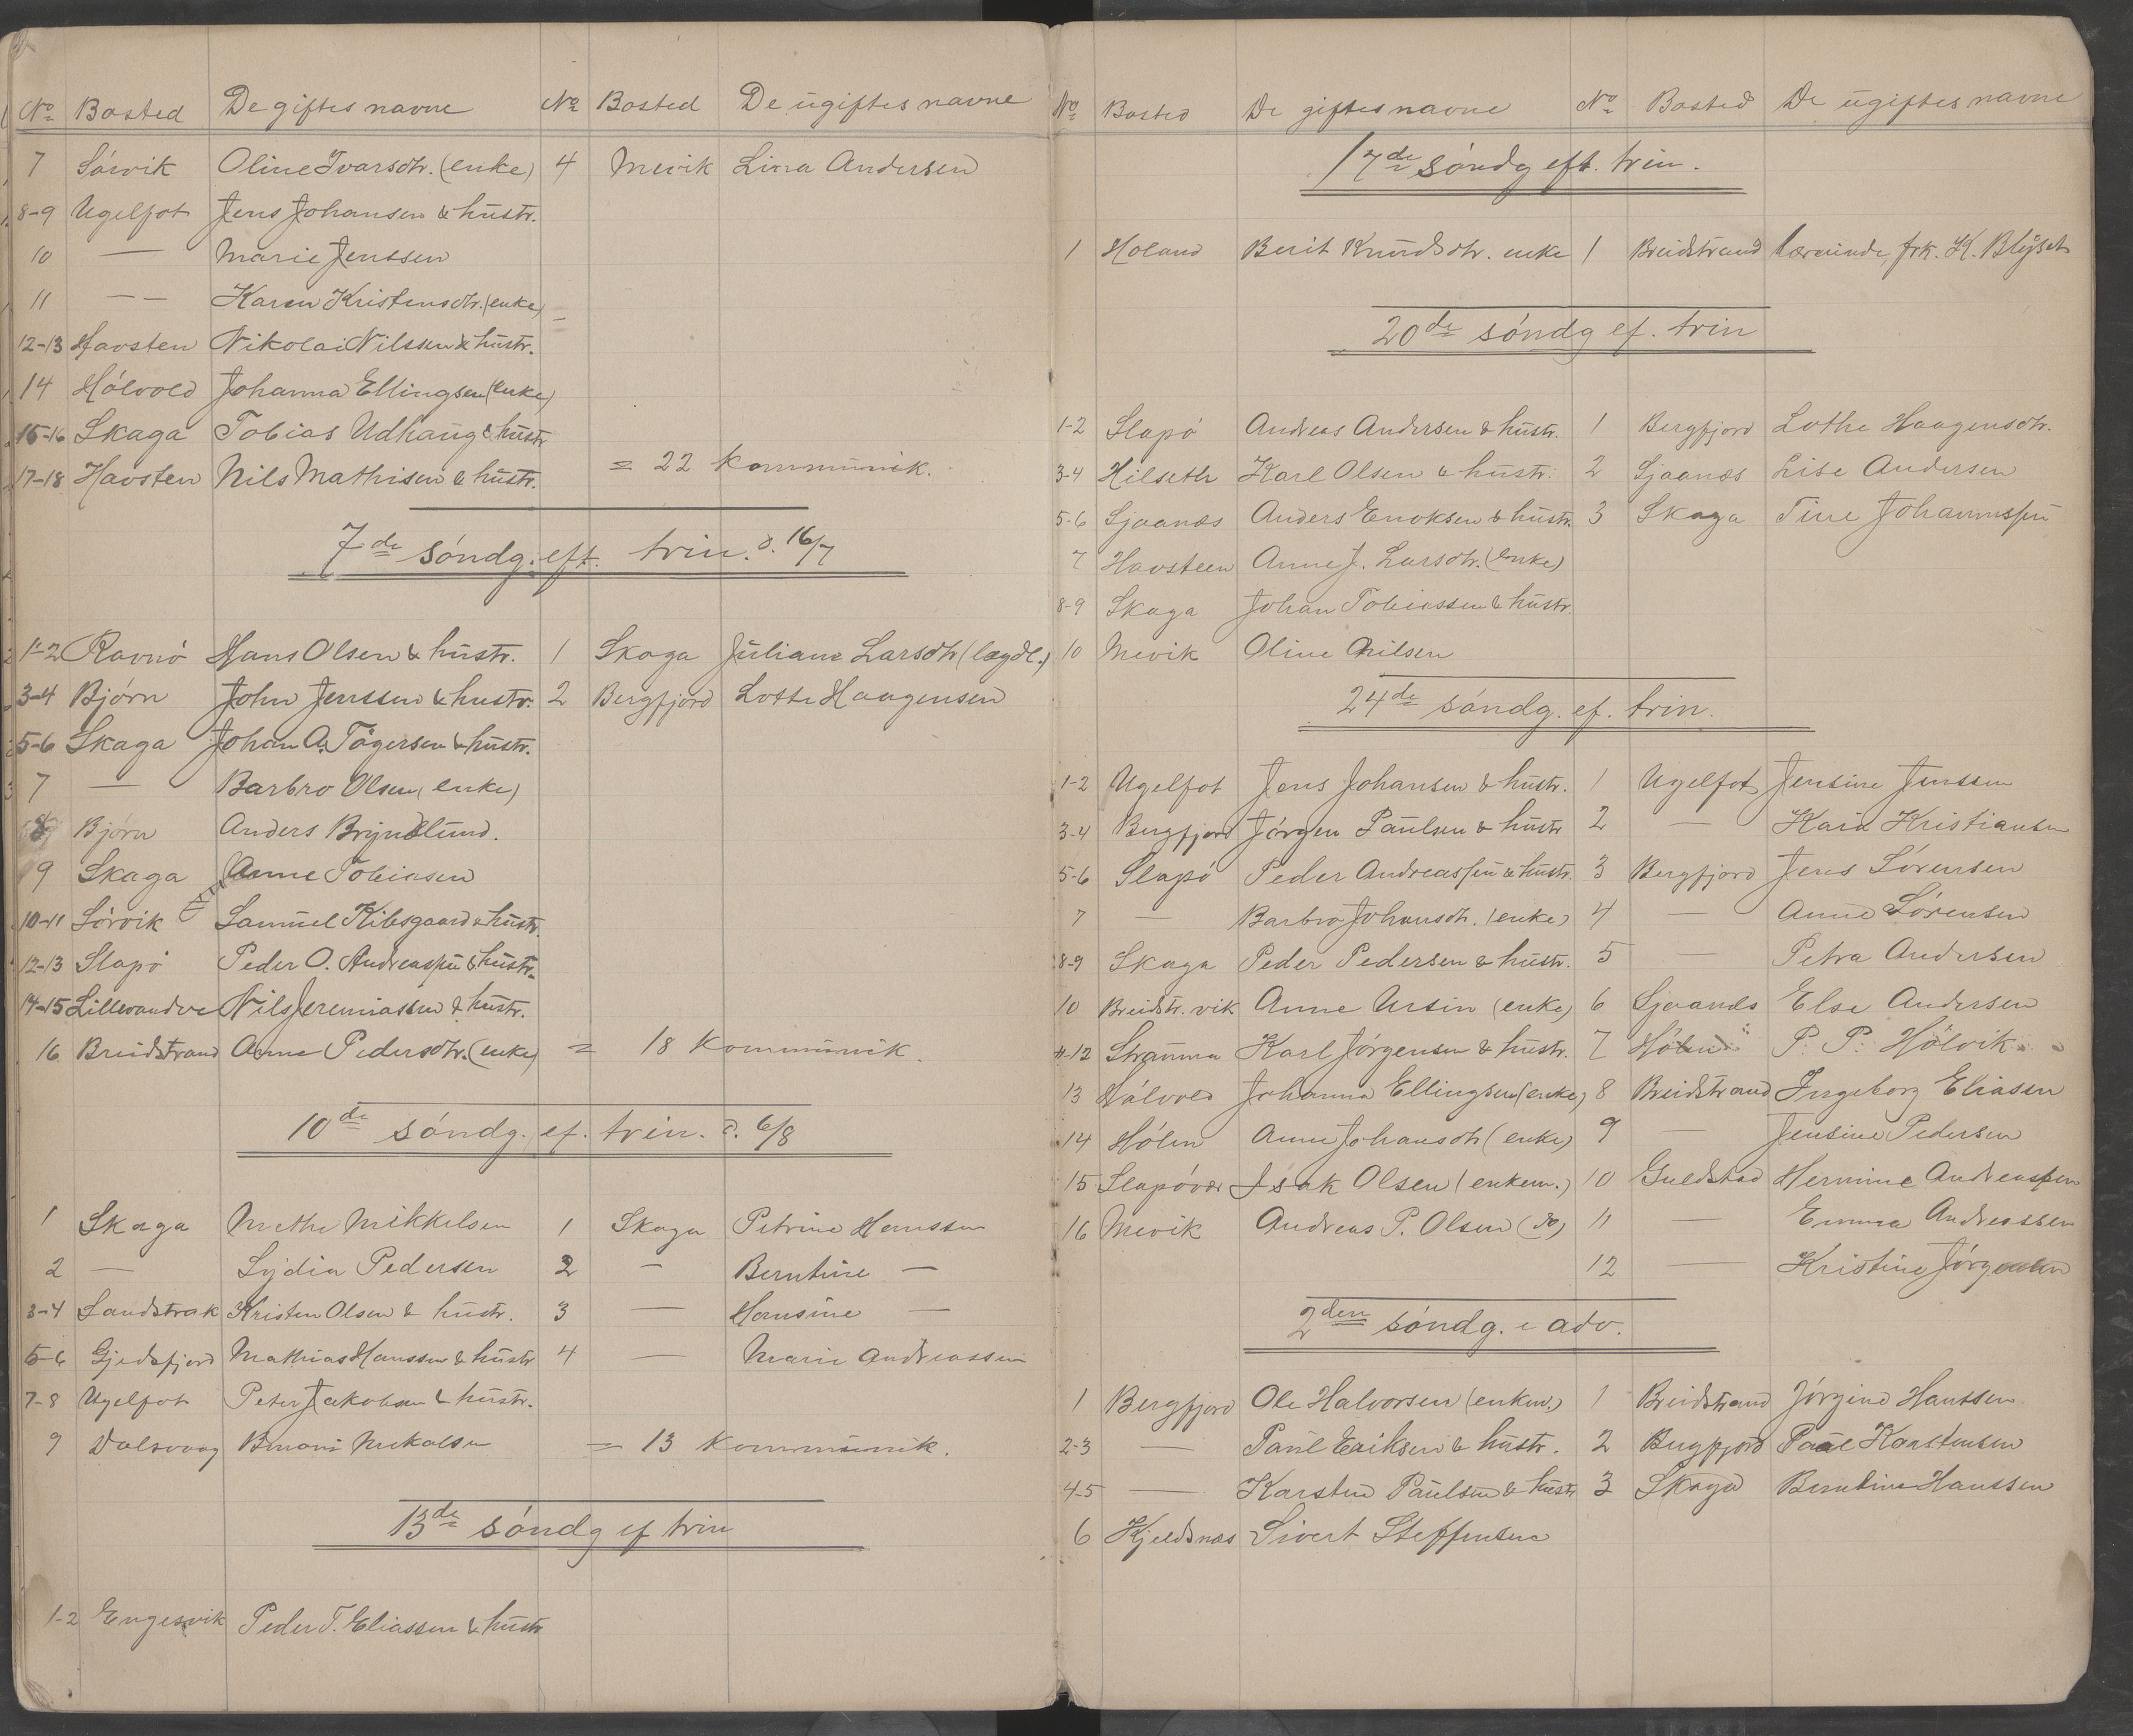 No Bosted De giftes navne No Bosted De ugiftes navne
7 Sörvik Oline Ivarsdtr. (enke) 4 Mevik Lina Andersen
8-9 Ugelfot Jens Johansen & hustr.
10 — Marie Jenssen
11 — — Karen Kristensdtr. (enke)
12-13 Havsten Nikolai Nilssen & hustr.
14 Hólvold Johanna Ellingsen (enke)
15-16 Skaga Tobias Udhaug & hustr
17-18 Havsten Nils Mathisen & hustr. = 22 kommunik.
7de söndg. eft. trin. d. 16/7
1-2 Ravnö Hans Olsen & hustr. 1 Skaga Juliane Larsdtr (lægdl.)
3-4 Björn John Jenssen & hustr. 2 Bergfjord Lotte Haagensen
5-6 Skaga Johan A. Tögersen & hustr.
7 — Barbro Olsen (enke)
8 Björn Anders Bryndlund.
9 Skaga Anne Tobiasen
10-11 Sörvik Samuel Kibsgaard & hustr.
12-13 Slapö Peder O. Andreassen & hustr.
14-15 Lillevandve Nils Jeremiassen & hustr.
16 Breidstrand Anne Pedersdtr. (enke) = 18 kommunik.
10de söndg. ef. trin. d. 6/8
1 Skaga Methe Mikkelsen 1 Skaga Petrine Hanssen
2 — Lydia Pedersen 2 — Berntine —
3-4 Sandstrak Kristen Olsen & hustr. 3 — Hansine —
5-6 Gjedsfjord Mathias Hanssen & hustr 4 — Marie Andreassen
7-8 Ugelfot Peter Jakobsen & hustr.
9 Dalsvaag = 13 kommunik.
13de söndg ef trin
1-2 Engesvik Peder T. Eliassen & hustr
No Bosted De giftes navne No Bosted De ugiftes navne
17de söndg eft. trin.
1 Holand Berit Knudsdtr. enke 1 Breidstrand lærerinde, frk. K. Blyset
20de söndg ef. trin
1-2 Slapö Andreas Andersen & hustr. 1 Bergfjord Lothe Haagensdtr.
3-4 Hilseth Karl Olsen & hustr. 2 Sjaanes Lise Andersen
5-6 Sjaanes Anders Enoksen & hustr. 3 Skaga Tine Johannessen
7 Havsteen Anne J. Larsdtr. (enke)
8-9 Skaga Johan Tobiassen & hustr.
10 Mevik Oline Nilsen
24de söndg. ef. trin.
1-2 Ugelfot Jens Johansen & hustr. 1 Ugelfot Jensine Jenssen
3-4 Bergfjord Jörgen Paulsen & hustr 2 — Karen Kristiansen
5-6 Slapö Peder Andreassen & hustr. 3 Bergfjord Jens Sörensen
7 — Barbro Johansdtr. (enke) 4 — Anne Sörensen
8-9 Skaga Peder Pedersen & hustr. 5 — Petra Andersen
10 Breidstr. vik Anne Ursin (enke) 6 Sjaanes Else Andersen
11-12 Straumen Karl Jörgensen & hustr. 7 Hölen P. P. Hölvik
13 Hólvold Johanna Ellingsen (enke) 8 Breidstrand Ingeborg Eliasen
14 Hölen Anne Johansdtr (enke) 9 — Jensine Pedersen
15 Slapövær Isak Olsen (enkem.) 10 Guldstad Hermine Andreassen
16 Mevik Andreas P. Olsen (do) 11 — Emma Andreassen
12 — Kristine Jörgensen
2den söndg. i adv.
1 Bergfjord Ole Halvorsen (enkem.) 1 Breidstrand Jörgine Hanssen
2-3 — Paul Eriksen & hustr. 2 Bergfjord Paul Karstensen
4-5 — Karsten Paulsen & hustr 3 Skaga Berntine Hanssen
6 Kjeldsnes Sivert Steffensen